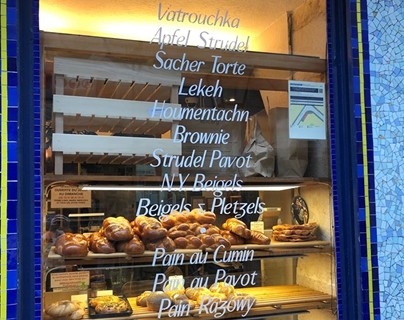 Vatrouchka
Apfel Strudel
Sacher Torte
Lekeh
Houmentachn
Brownie
Strudel Pavot
N.Y Beigels
Beigels & Pletzels
Pain au Cumin
Pain au Pavot
Pain Razowy